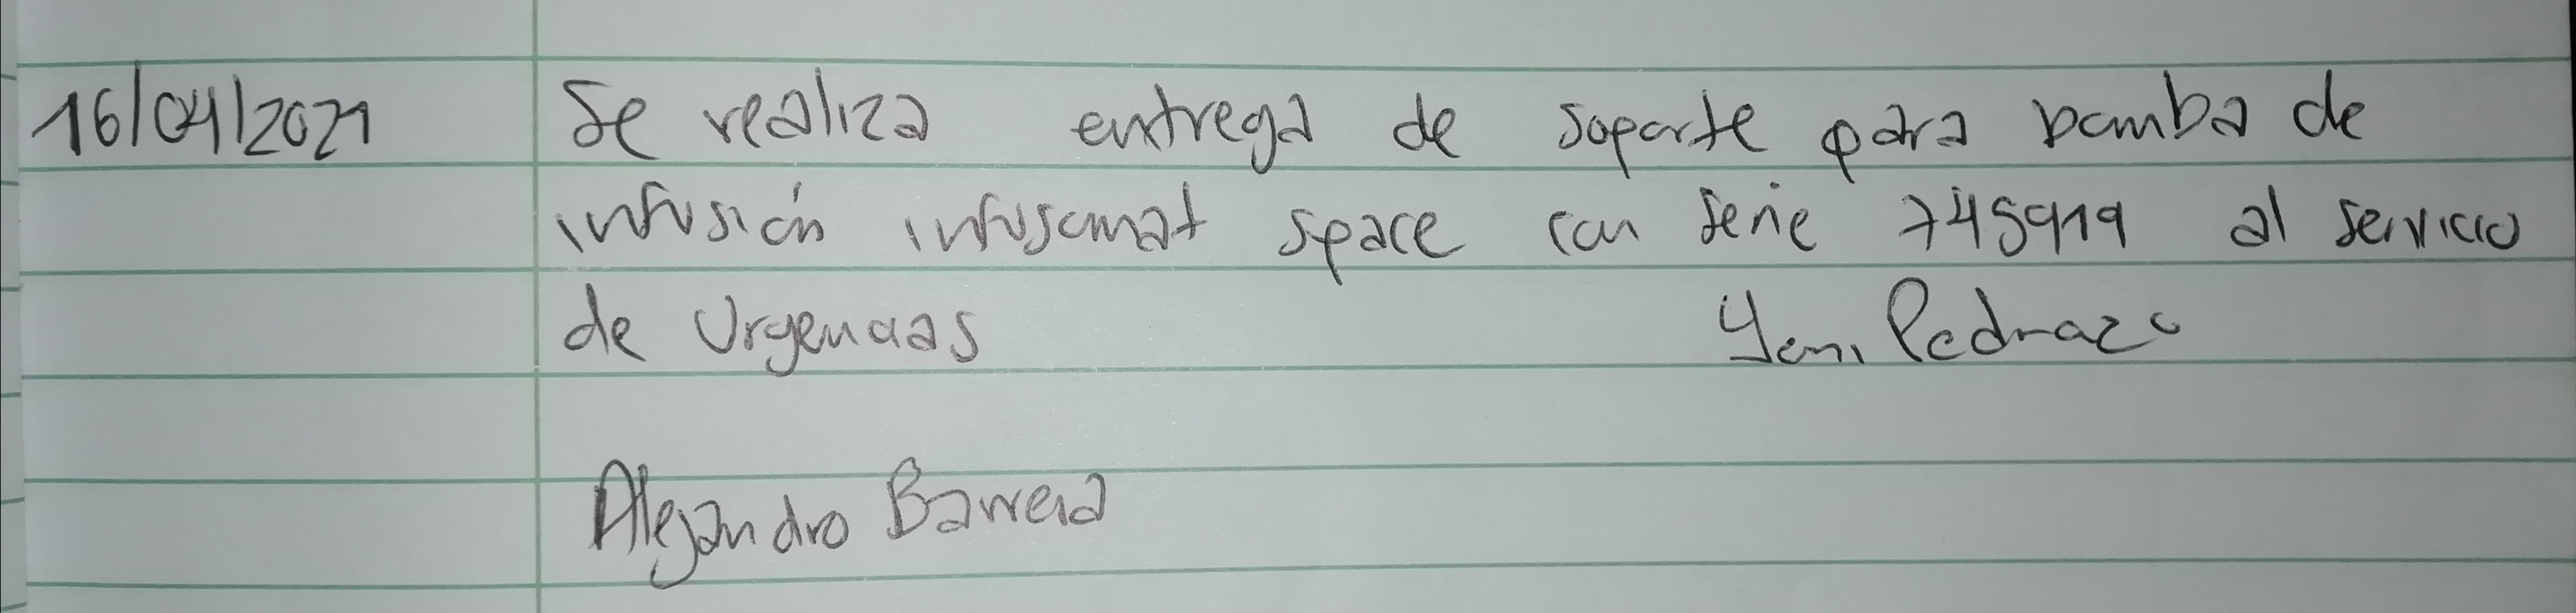 16/04/2021 Se realiza entrega de soporte para bomba de
infusión infusomat space con serie 745919 al servicio
de Urgencias Yeni Pedraza
Alejandro Barrera